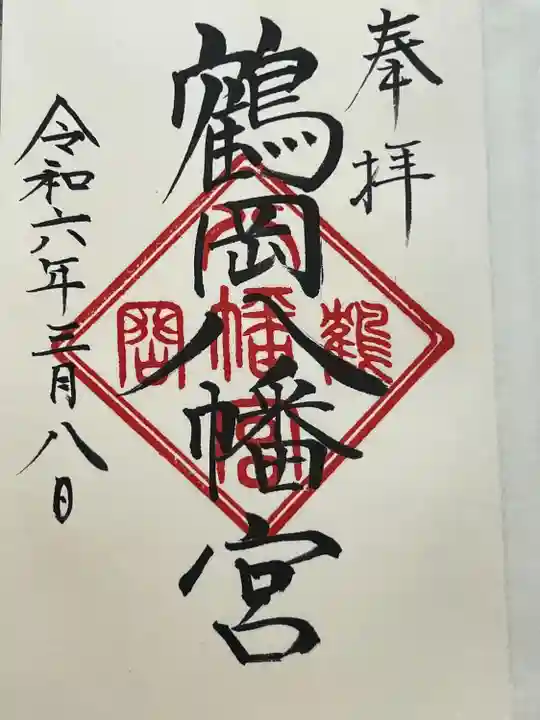 奉拝
鶴岡八幡宮
鶴
八幡宮
岡
令和六年三月八日